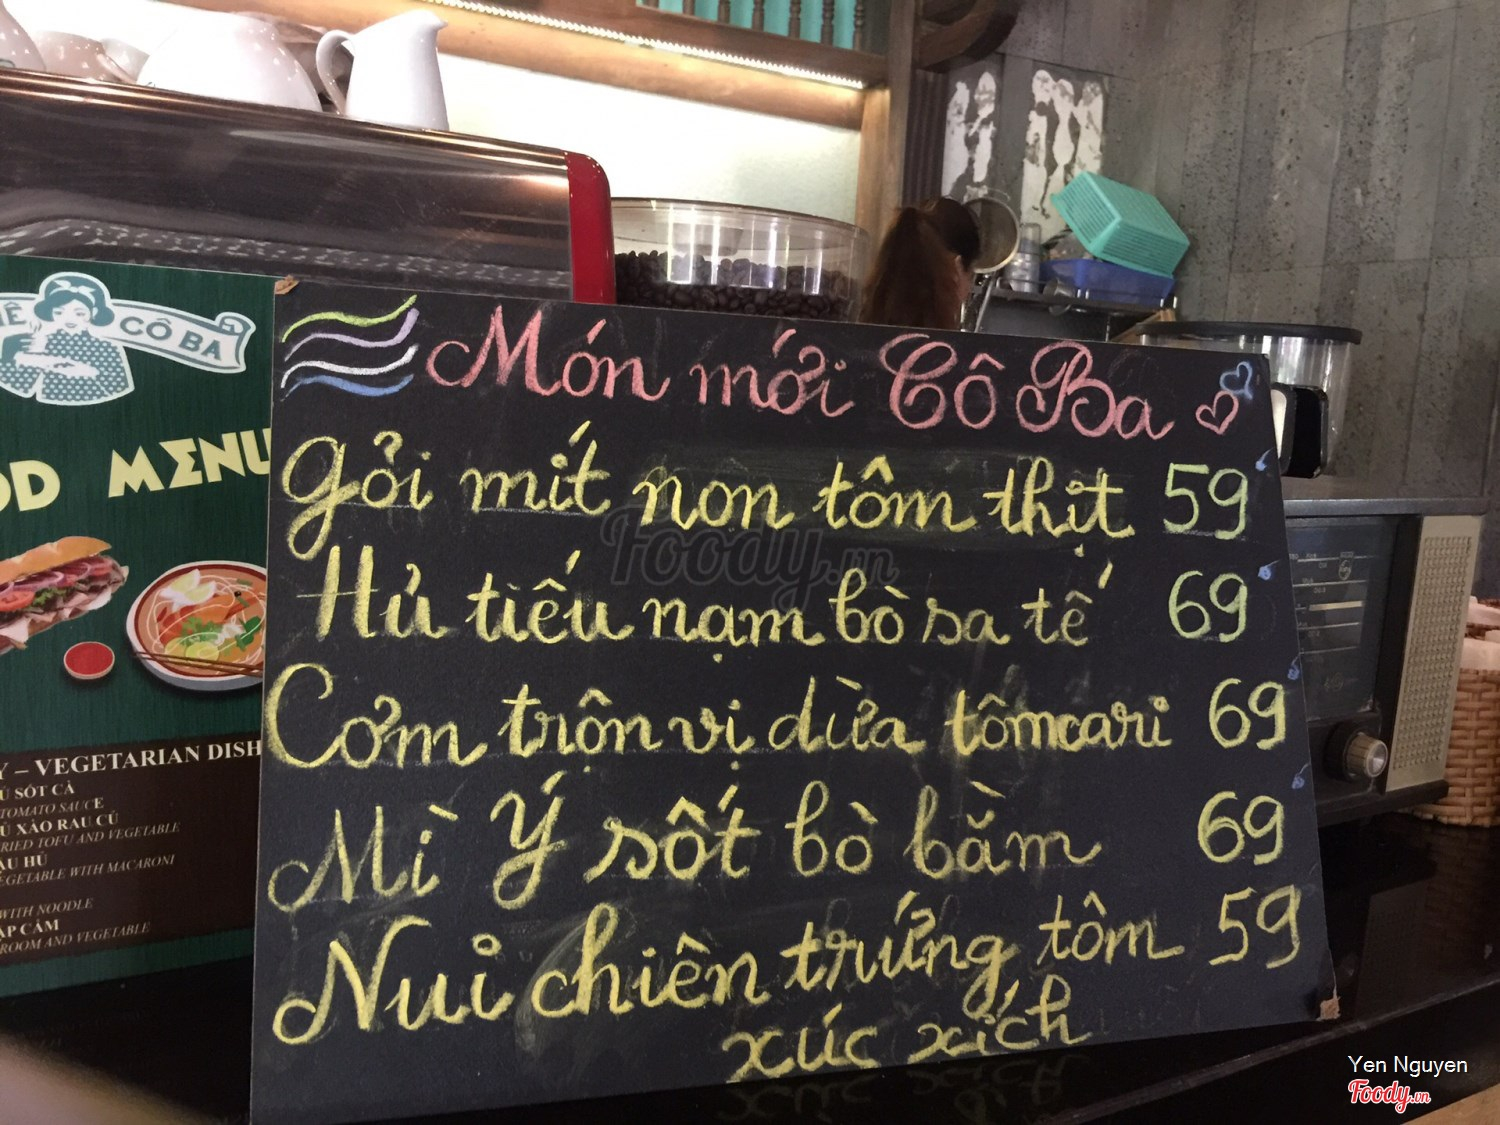 CÔ BA
MENU
– VEGETARIAN DISH
SỐT CÀ
TOMATO SAUCE
XÀO RAU CỦ
FRIED TOFU AND VEGETABLE
HỦ
VEGETABLE WITH MACARONI
WITH NOODLE
CẢM
AND VEGETABLE
Món mới Cô Ba
Gỏi mít non tôm thịt 59
Hủ tiếu nạm bò sa tế 69
Cơm trộn vị dừa tôm cari 69
Mì Ý sốt bò bằm 69
Nui chiên trứng tôm 59
xúc xích
Foody.vn
Yen Nguyen
Foody.vn